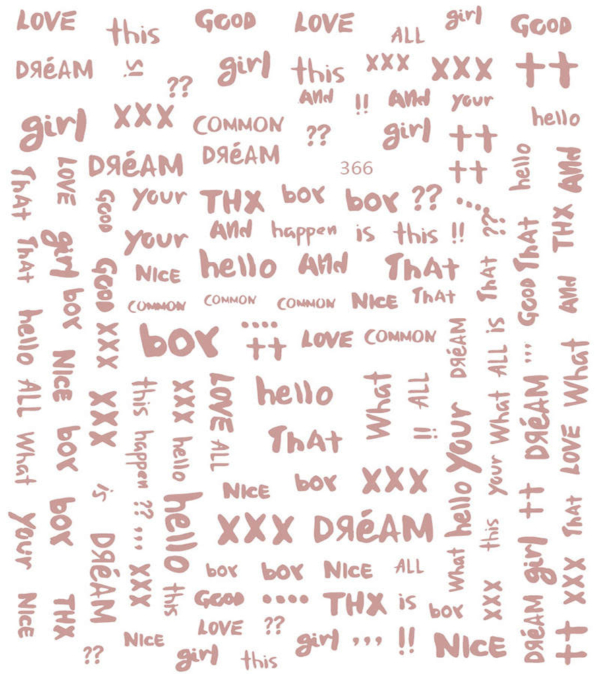 LOVE this GOOD LOVE ALL girl GOOD
DЯéAM is ?? girl this XXX XXX ++
girl XXX COMMON ?? AND !! AND your hello
DЯéAM DЯéAM girl ++
366 ++
THAT LOVE GOOD your THX boy boy ?? .... ?? hello AND
your AND happen is this !! THAT THX
THAT girl GOOD NICE hello AND THAT THAT GOOD AND
boy COMMON COMMON COMMON NICE THAT
hello NICE XXX boy .... ++ LOVE COMMON DЯéAM is ,,, What
ALL XXX this XXX LOVE hello What ALL your ALL DЯéAM
What boy happen hello ALL THAT !! What LOVE
is ?? NICE boy XXX hello your ++ THAT
your boy DЯéAM ,,, hello XXX DЯéAM this girl
NICE THX XXX this boy boy NICE ALL What XXX XXX
GOOD .... THX is boy DЯéAM ++
LOVE ??
?? NICE girl this girl ,,, !! NICE